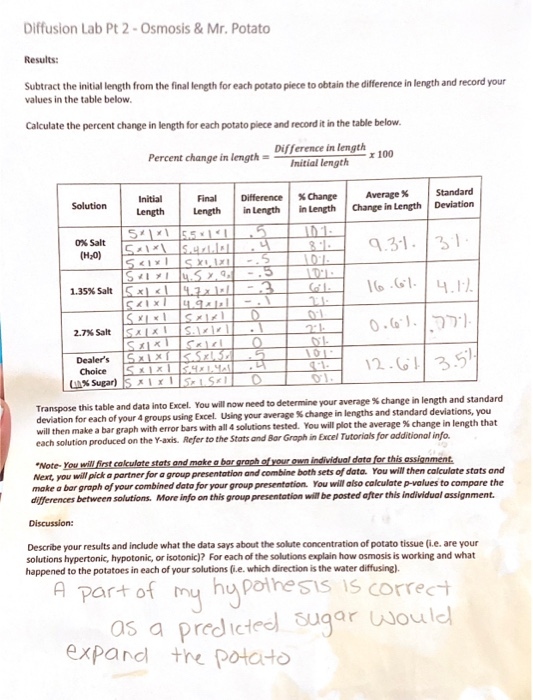 Diffusion Lab Pt 2 - Osmosis & Mr. Potato
Results:
Subtract the initial length from the final length for each potato piece to obtain the difference in length and record your
values in the table below.
Calculate the percent change in length for each potato piece and record it in the table below.
Percent change in length = Difference in length / Initial length x 100
Solution Initial Length Final Length Difference in Length % Change in Length Average % Change in Length Standard Deviation
0% Salt (H₂O)
5x1x1 .5 10%
5x1x1 .4 8% 9.3%
5x1x1 5x1.1x1 -.5 10%
1.35% Salt
5x1x1 -.5 10%
5x1x1 -.3 6% 4.1%
5x1x1 -.1 2%
2.7% Salt
5x1x1 5x1x1 0 0%
5x1x1 5.1x1x1 .1 2% 0.6%
5x1x1 5x1x1 0 0%
Dealer's Choice % Sugar)
5x1x1 .5 10%
5x1x1 .4 12.6% 3.5%
5x1x1 0 0%
Transpose this table and data into Excel. You will now need to determine your average % change in length and standard
deviation for each of your 4 groups using Excel. Using your average % change in lengths and standard deviations, you
will then make a bar graph with error bars with all 4 solutions tested. You will plot the average % change in length that
each solution produced on the Y-axis. Refer to the Stats and Bar Graph in Excel Tutorials for additional info.
*Note- You will first calculate stats and make a bar graph of your own individual data for this assignment.
Next, you will pick a partner for a group presentation and combine both sets of data. You will then calculate stats and
make a bar graph of your combined data for your group presentation. You will also calculate p-values to compare the
differences between solutions. More info on this group presentation will be posted after this individual assignment.
Discussion:
Describe your results and include what the data says about the solute concentration of potato tissue (i.e. are your
solutions hypertonic, hypotonic, or isotonic)? For each of the solutions explain how osmosis is working and what
happened to the potatoes in each of your solutions (i.e. which direction is the water diffusing).
A part of my hypothesis is correct
as a predicted sugar would
expand the potato